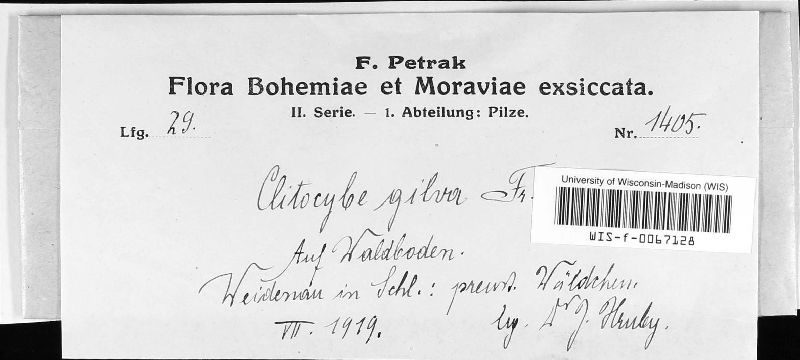 F. Petrak
Flora Bohemiae et Moraviae exsiccata.
II. Serie. — 1. Abteilung: Pilze.
Lfg. 29. Nr. 1405.
Clitocybe gilva Fr.
University of Wisconsin-Madison (WIS)
WIS-f-0067128
Auf Waldboden.
Weidenau in Schl.: preuss. Wäldchen.
VII. 1919. lg. Dr J. Hruby.